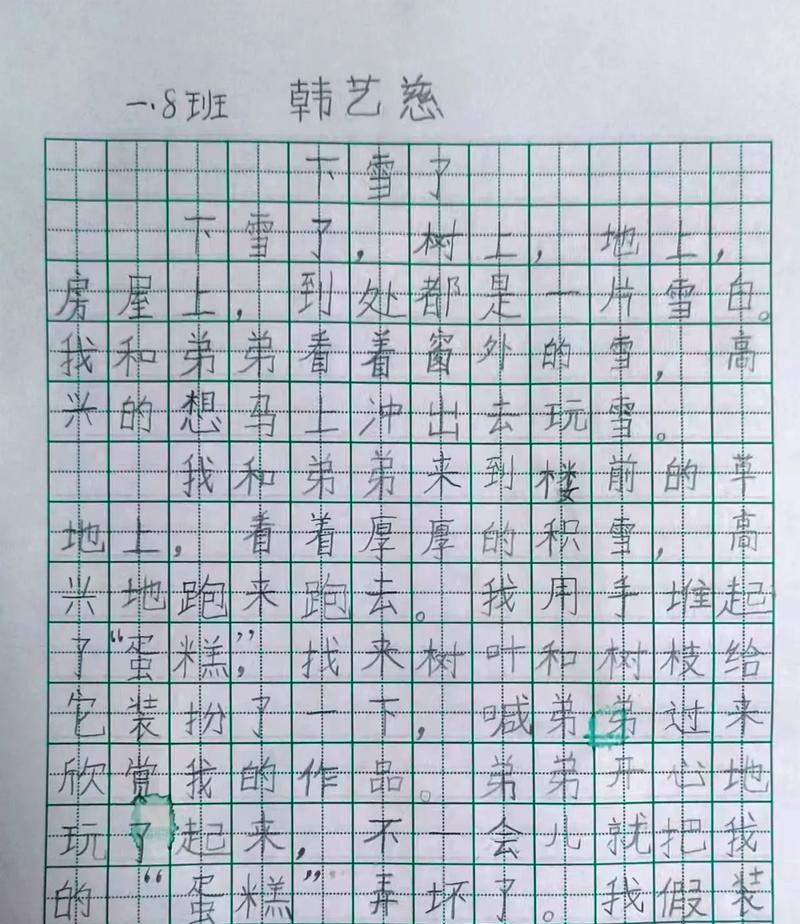 一.8班 韩艺慈
下雪了
下雪了，树上，地上，
房屋上，到处都是一片雪白。
我和弟弟看着窗外的雪，高
兴的想马上冲出去玩雪。
我和弟弟来到楼前的草
地上，看着厚厚的积雪，高
兴地跑来跑去。我用手堆起
了“蛋糕”，找来树叶和树枝给
它装扮了一下，喊弟弟过来
欣赏我的作品。弟弟开心地
玩了起来，不一会儿就把我
的“蛋糕”弄坏了。我假装